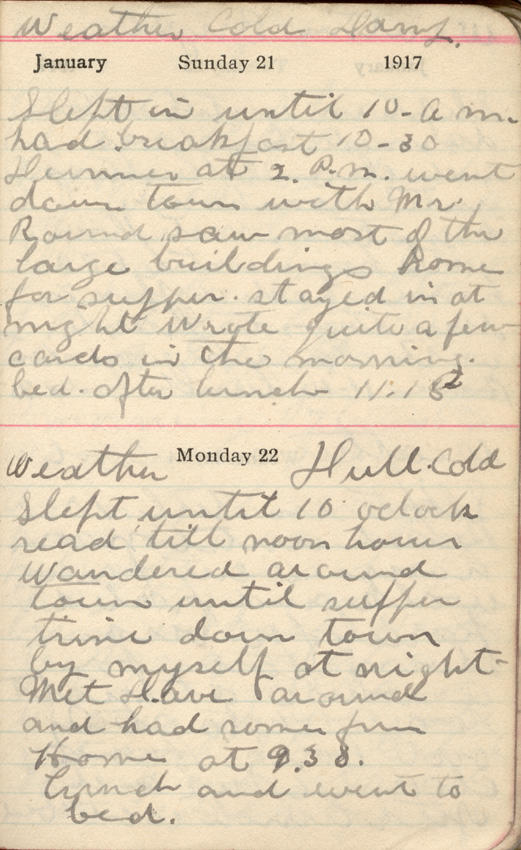 Weather Cold Damp.
January Sunday 21 1917
Slept in until 10 - a m.
had breakfast 10-30
Dinner at 2. P.m. went
down town with Mr.
Round saw most of the
large buildings home
for supper. stayed in at
night wrote quite a few
cards in the morning.
bed. after lunch 11.15
Monday 22
Weather Hull. Cold
Slept until 10 oclock
read till noon hour
Wandered around
town until supper
time down town
by myself at night-
Met Dave around
and had some fun
Home at 9.30.
lunch and went to
bed.